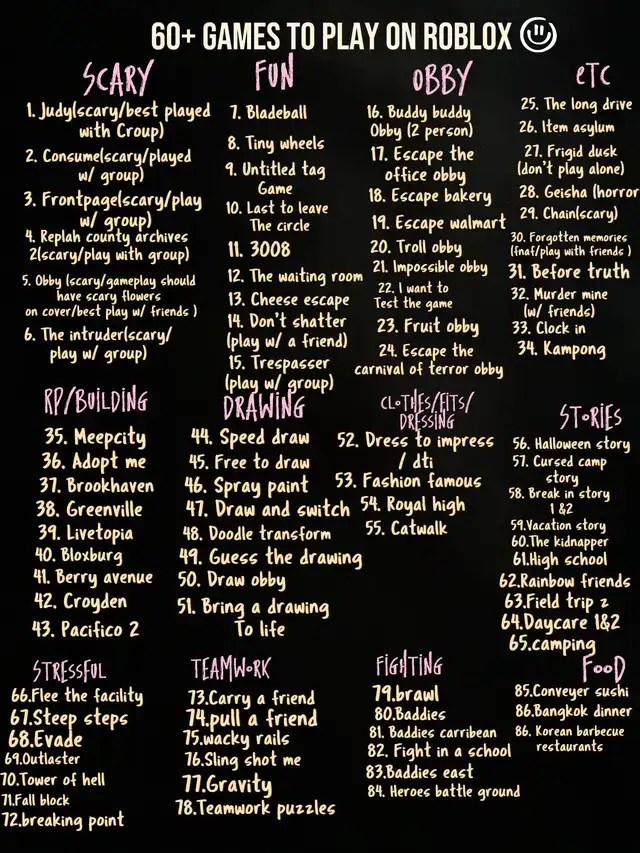 60+ GAMES TO PLAY ON ROBLOX
SCARY
1. Judy(scary/best played
with Croup)
2. Consume(scary/played
w/ group)
3. Frontpage(scary/play
w/ group)
4. Replah county archives
2(scary/play with group)
5. Obby (scary/gameplay should
have scary flowers
on cover/best play w/ friends )
6. The intruder(scary/
play w/ group)
FUN
7. Bladeball
8. Tiny wheels
9. Untitled tag
Game
10. Last to leave
The circle
11. 3008
12. The waiting room
13. Cheese escape
14. Don't shatter
(play w/ a friend)
15. Trespasser
(play w/ group)
OBBY
16. Buddy buddy
Obby (2 person)
17. Escape the
office obby
18. Escape bakery
19. Escape walmart
20. Troll obby
21. Impossible obby
22. I want to
Test the game
23. Fruit obby
24. Escape the
carnival of terror obby
eTC
25. The long drive
26. Item asylum
27. Frigid dusk
(don't play alone)
28. Geisha (horror
29. Chain(scary)
30. Forgotten memories
(fnaf/play with friends )
31. Before truth
32. Murder mine
(w/ friends)
33. Clock in
34. Kampong
RP/BUILDING
35. Meepcity
36. Adopt me
37. Brookhaven
38. Greenville
39. Livetopia
40. Bloxburg
41. Berry avenue
42. Croyden
43. Pacifico 2
DRAWING
44. Speed draw
45. Free to draw
46. Spray paint
47. Draw and switch
48. Doodle transform
49. Guess the drawing
50. Draw obby
51. Bring a drawing
To life
CLOTHES/FITS/
DRESSING
52. Dress to impress
/ dti
53. Fashion famous
54. Royal high
55. Catwalk
STORIES
56. Halloween story
57. Cursed camp
story
58. Break in story
1 &2
59.Vacation story
60.The kidnapper
61.High school
62.Rainbow friends
63.Field trip z
64.Daycare 1&2
65.camping
STRESSFUL
66.Flee the facility
67.Steep steps
68.Evade
69.Outlaster
70.Tower of hell
71.Fall block
72.breaking point
TEAMWORK
73.Carry a friend
74.pull a friend
75.wacky rails
76.Sling shot me
77.Gravity
78.Teamwork puzzles
FIGHTING
79.brawl
80.Baddies
81. Baddies carribean
82. Fight in a school
83.Baddies east
84. Heroes battle ground
FOOD
85.Conveyer sushi
86.Bangkok dinner
86. Korean barbecue
restaurants